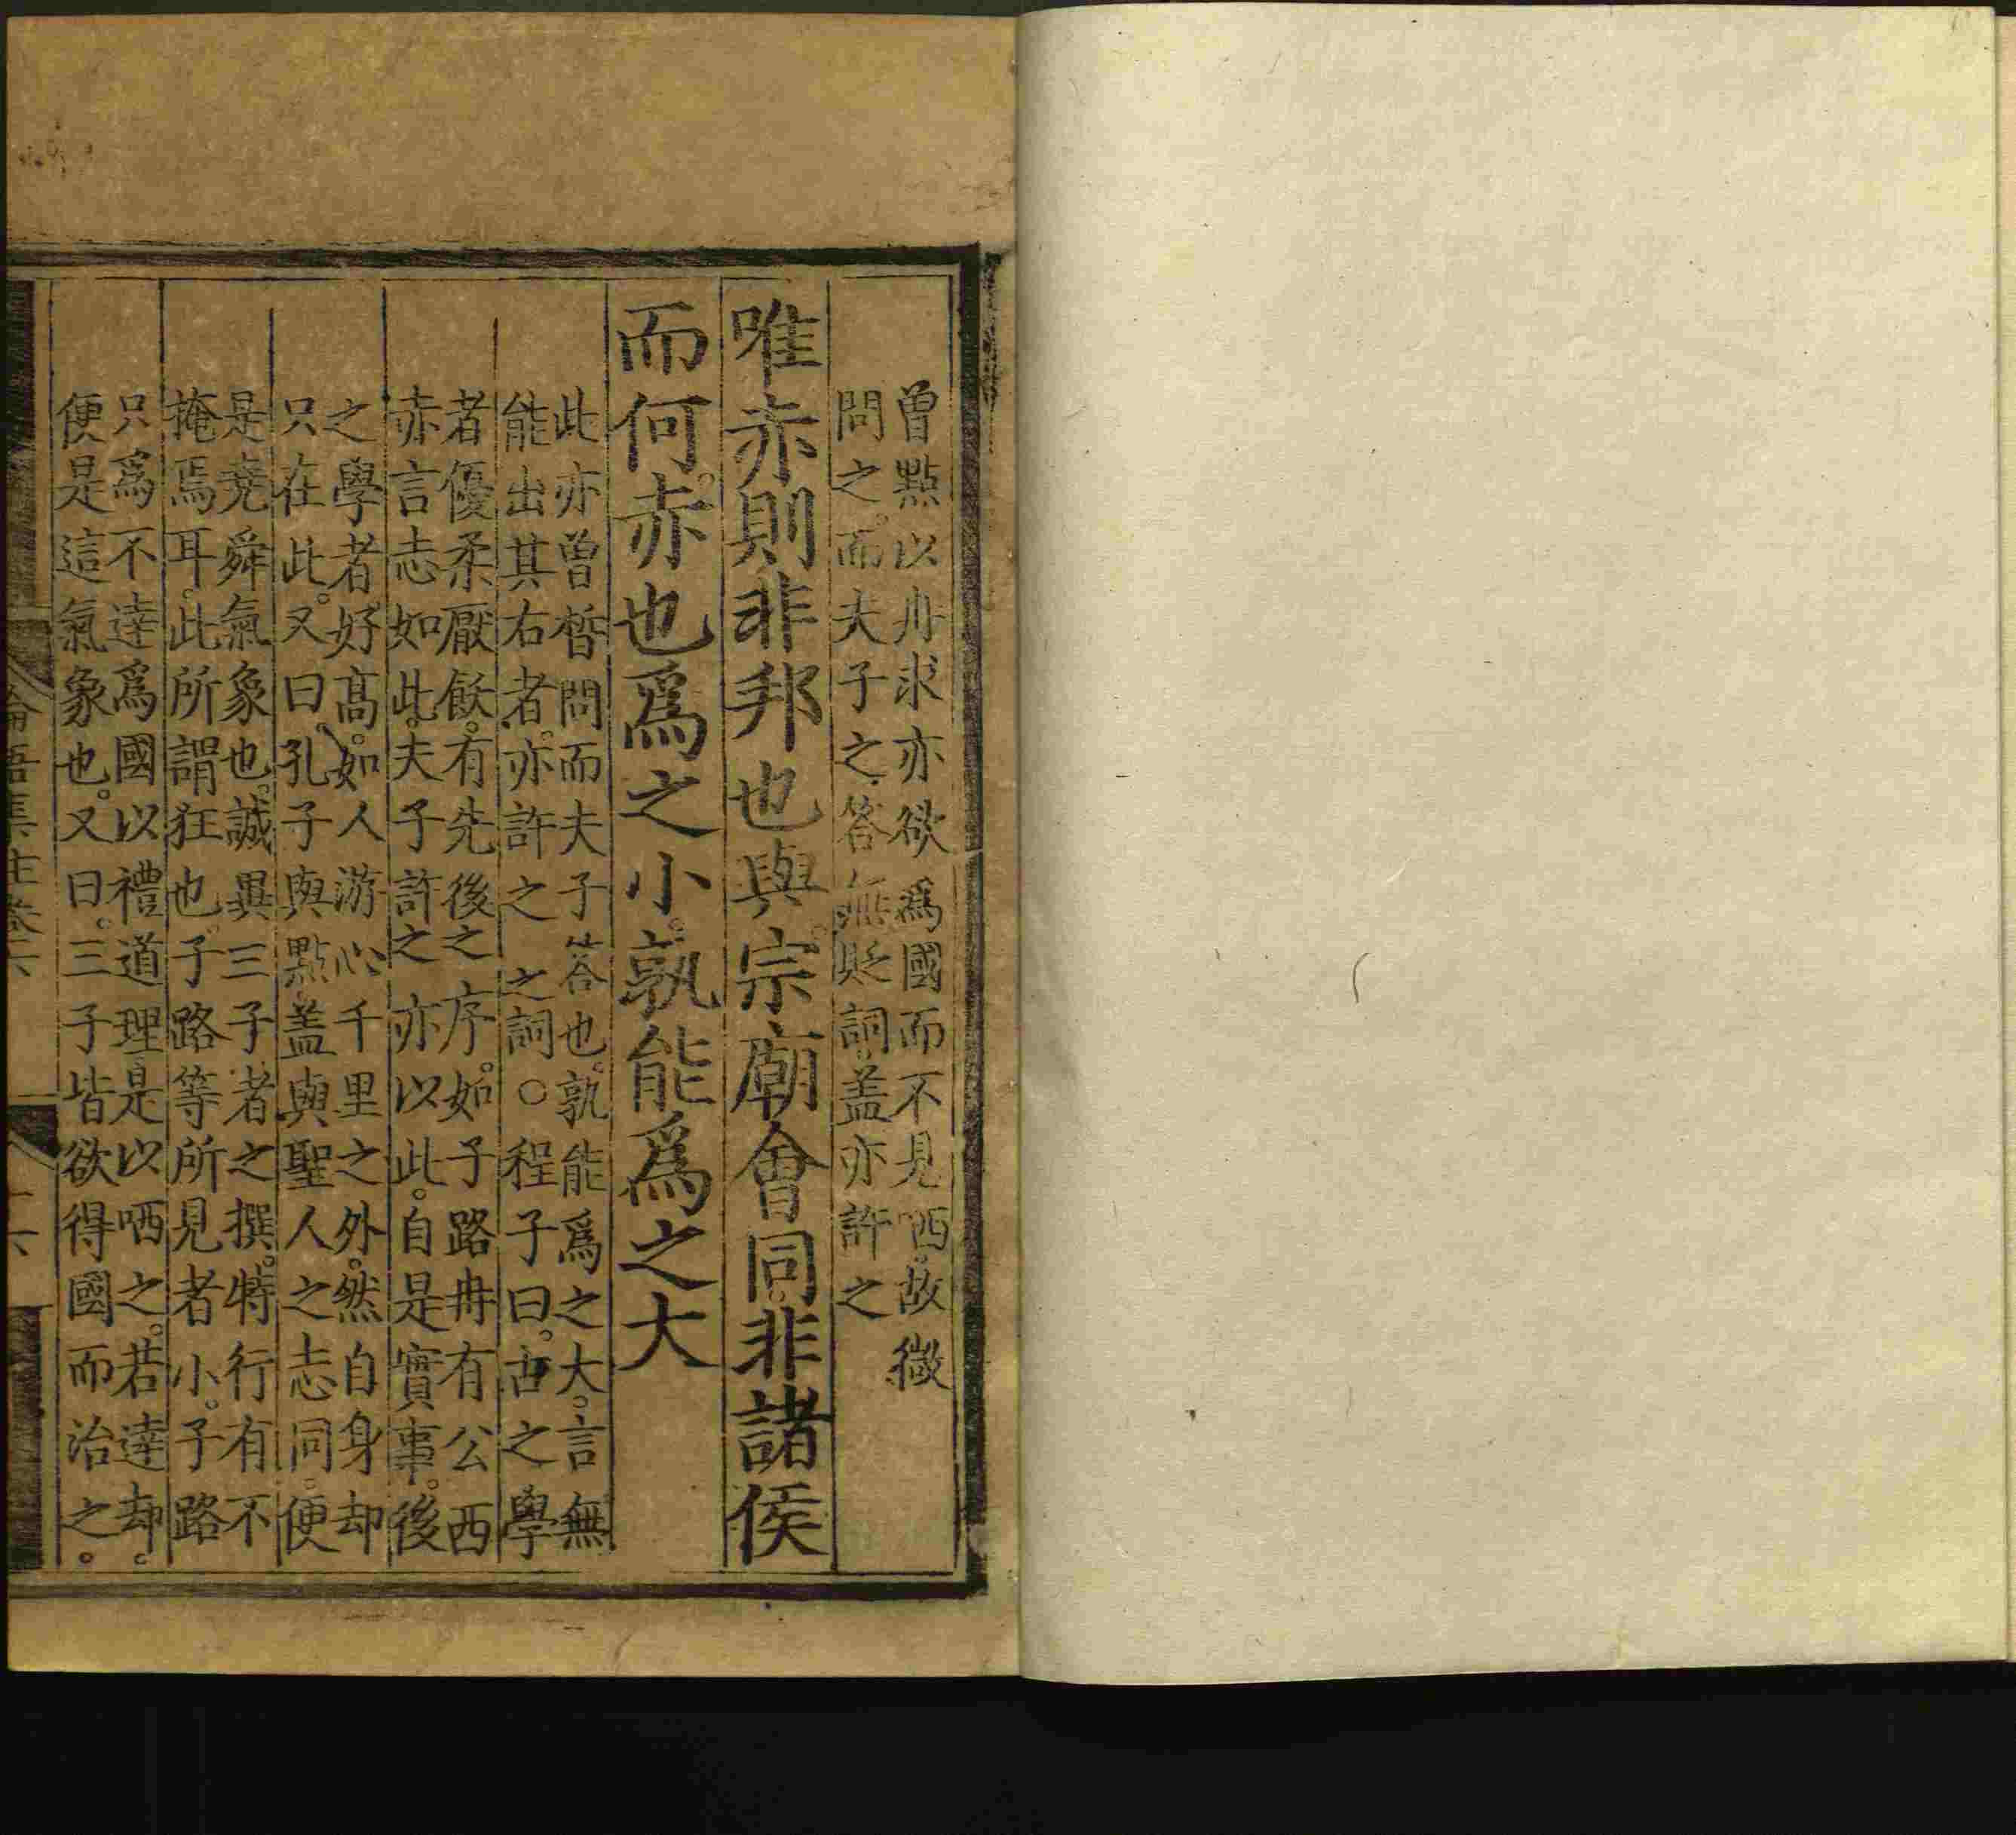 曾點以冉求亦欲爲國而不見哂。故微
問之。而夫子之答無貶詞。盖亦許之
唯赤則非邦也與。宗廟會同。非諸侯
而何。赤也爲之小。孰能爲之大
此亦曾晳問而夫子答也。孰能爲之大。言無
能出其右者。亦許之之詞○程子曰。古之學
者優柔厭飫。有先後之序。如子路冉有公西
赤言志如此。夫子許之亦以此。自是實事。後
之學者好高。如人游心千里之外。然自身却
只在此。又曰。孔子與點盖與聖人之志同。便
是堯舜氣象也。誠異三子者之撰。特行有不
掩焉耳。此所謂狂也。子路等所見者小。子路
只爲不達爲國以禮道理。是以哂之。若達却。
便是這氣象也。又曰。三子皆欲得國而治之。
論語集註卷六